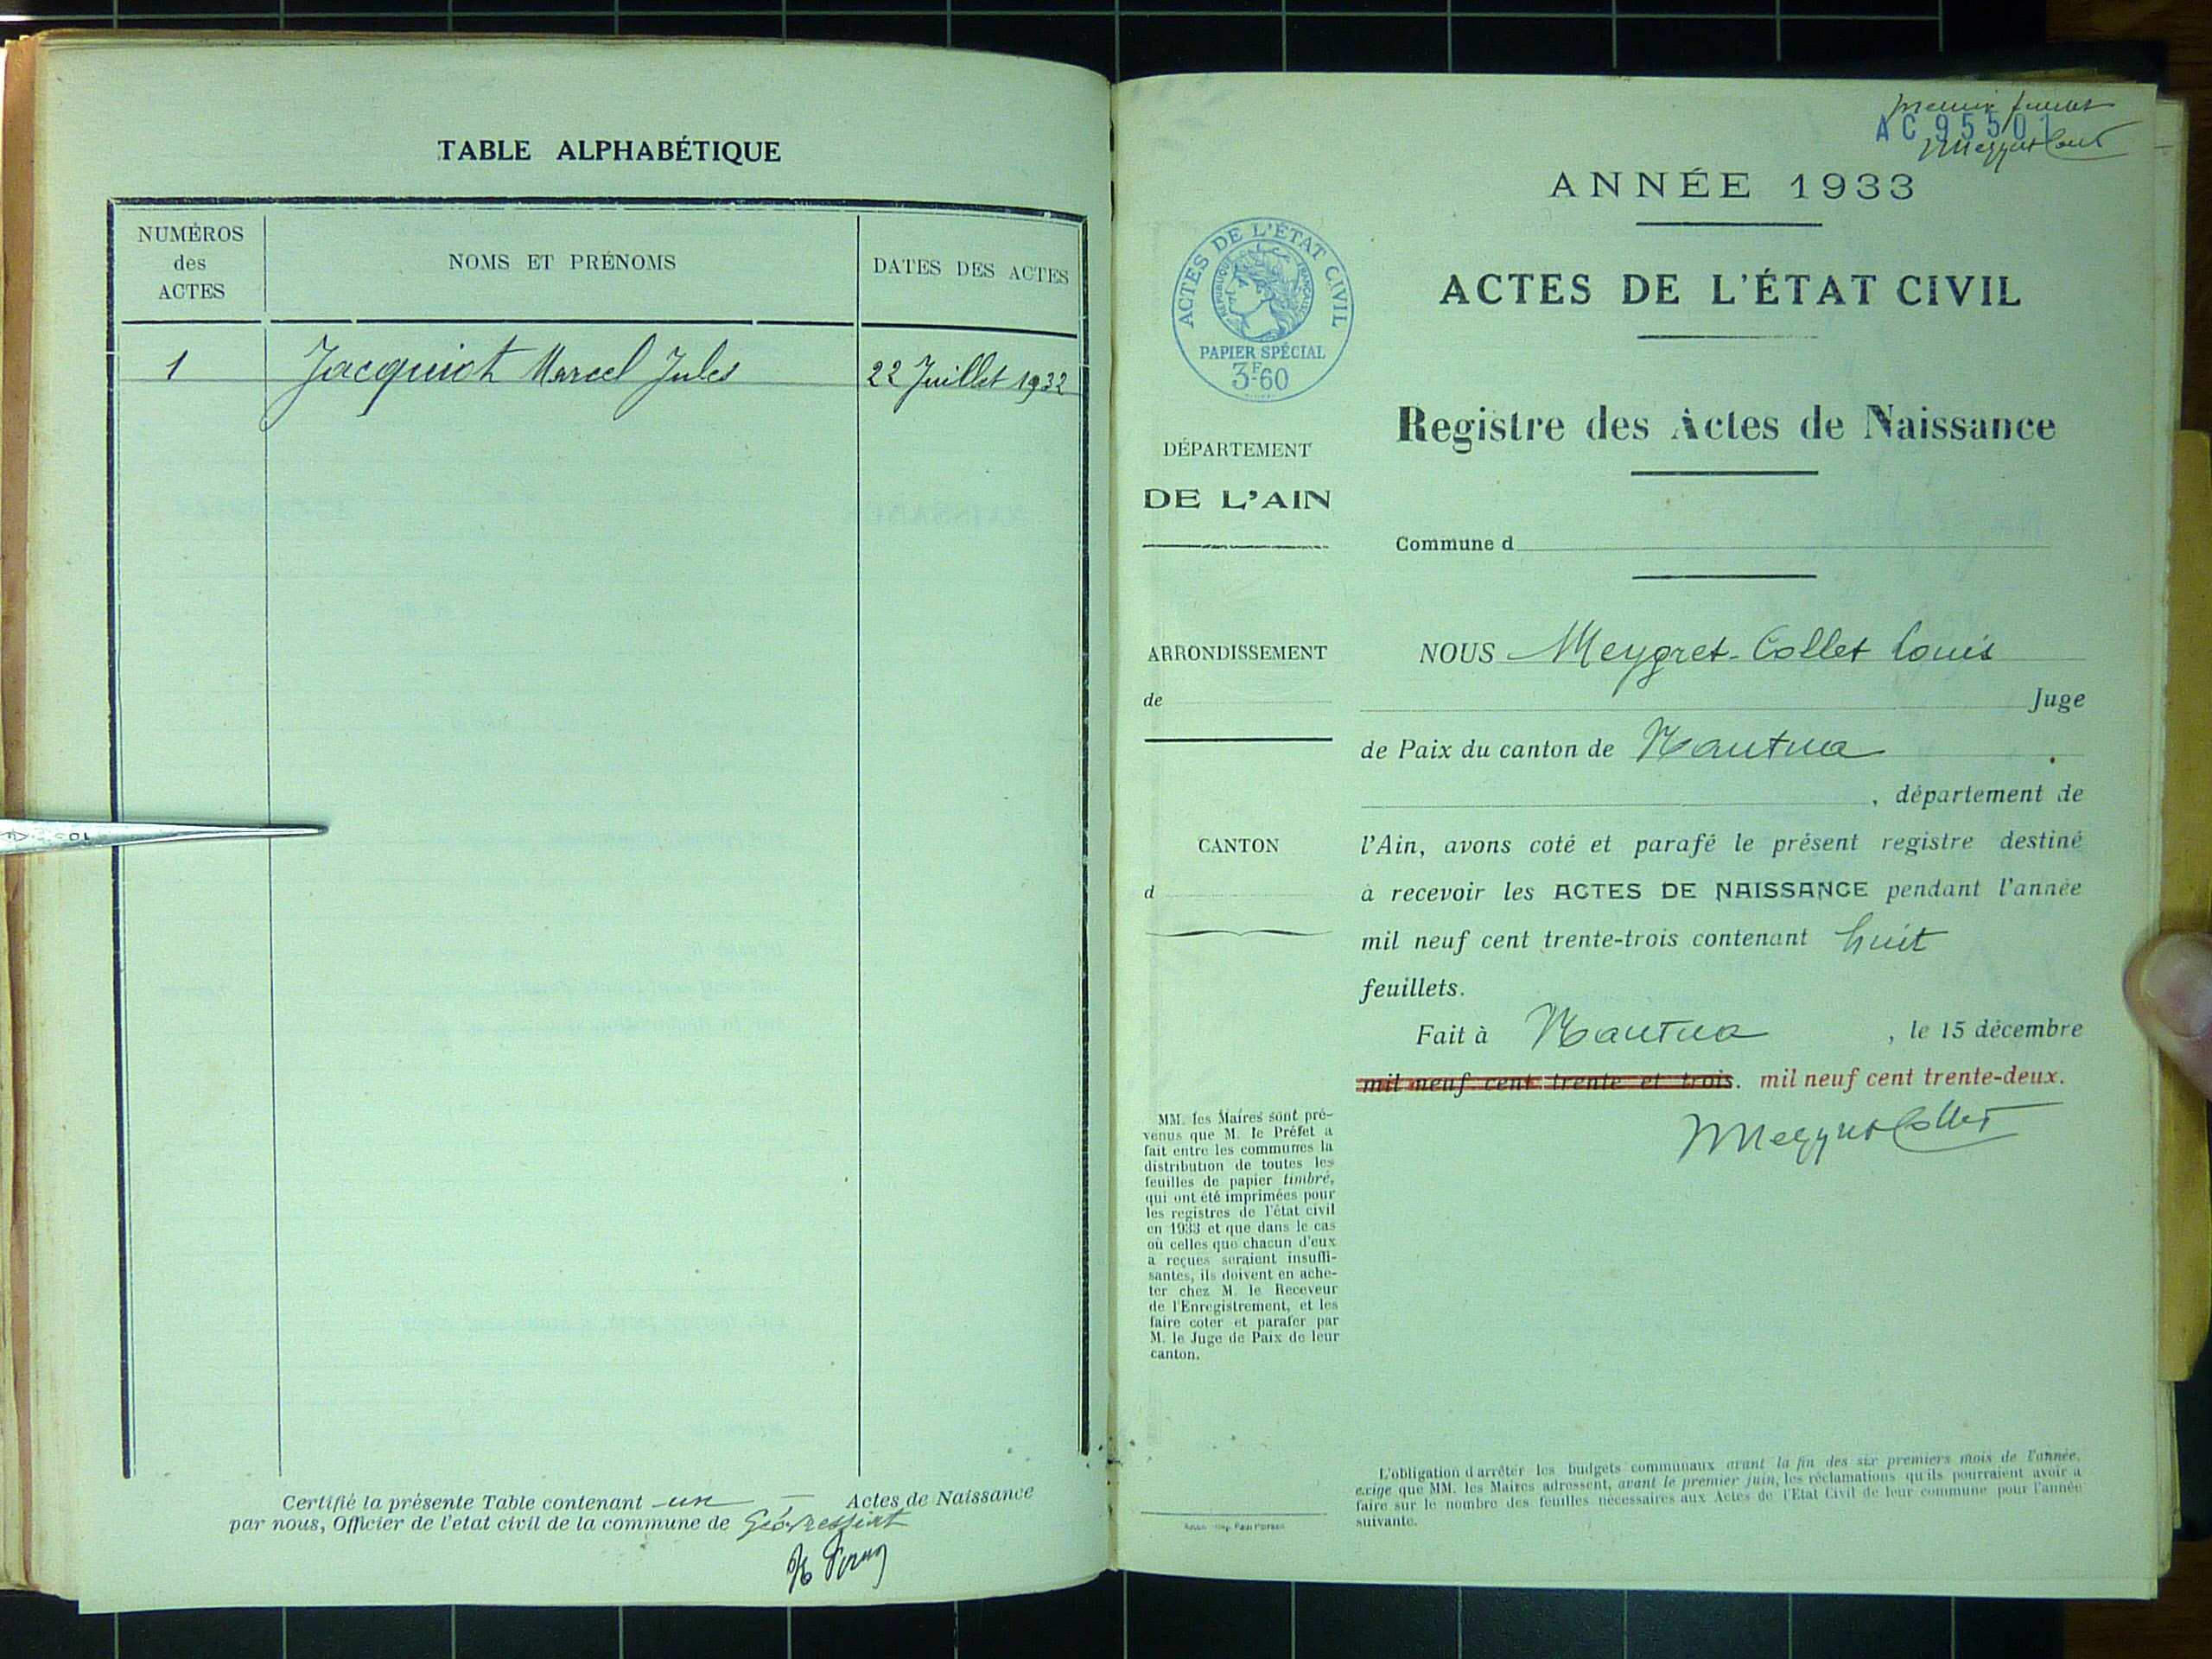 TABLE ALPHABÉTIQUE
NUMÉROS
des
ACTES
NOMS ET PRÉNOMS
DATES DES ACTES
1 Jacquiot Marcel Jules 22 Juillet 1932
Certifié la présente Table contenant un Actes de Naissance
par nous, Officier de l'etat civil de la commune de
premier feuillet
AC 95501
ANNÉE 1933
ACTES DE L'ÉTAT CIVIL
ACTES DE L'ÉTAT CIVIL
RÉPUBLIQUE FRANÇAISE
PAPIER SPÉCIAL
3F60
Registre des Actes de Naissance
DÉPARTEMENT
DE L'AIN
Commune d
ARRONDISSEMENT
de
CANTON
d
NOUS Meygret-Collet Louis
Juge
de Paix du canton de Nantua
, département de
l'Ain, avons coté et parafé le présent registre destiné
à recevoir les ACTES DE NAISSANCE pendant l'année
mil neuf cent trente-trois contenant huit
feuillets.
Fait à Nantua , le 15 décembre
mil neuf cent trente et trois. mil neuf cent trente-deux.
Meygret Collet
MM. les Maires sont pré-
venus que M. le Préfet a
fait entre les communes la
distribution de toutes les
feuilles de papier timbré,
qui ont été imprimées pour
les registres de l'état civil
en 1933 et que dans le cas
où celles que chacun d'eux
a reçues seraient insuffi-
santes, ils doivent en ache-
ter chez M. le Receveur
de l'Enregistrement, et les
faire coter et parafer par
M. le Juge de Paix de leur
canton.
L'obligation d'arrêter les budgets communaux avant la fin des six premiers mois de l'année,
exige que MM. les Maires adressent, avant le premier juin, les réclamations qu'ils pourraient avoir à
faire sur le nombre des feuilles nécessaires aux Actes de l'Etat Civil de leur commune pour l'année
suivante.